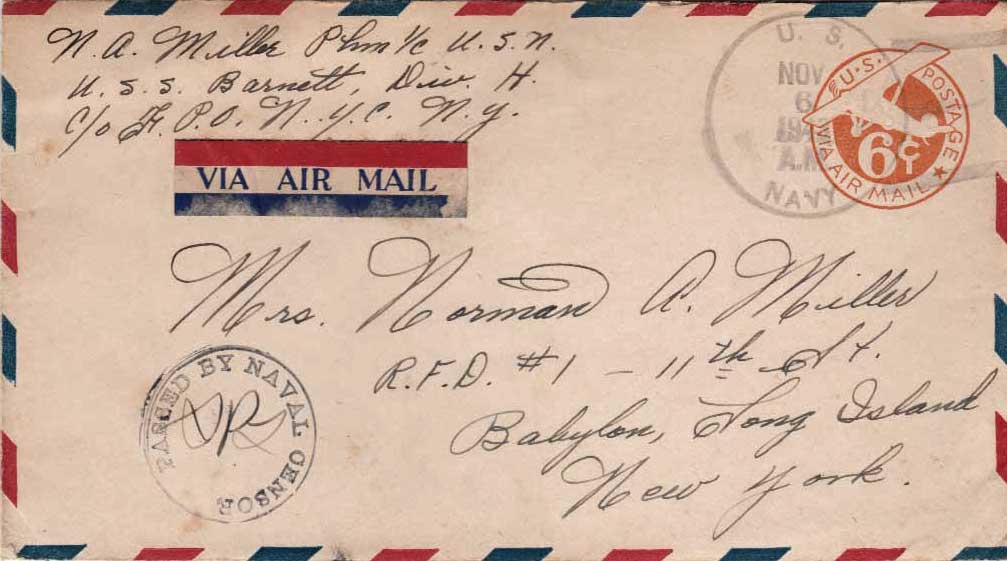 N. A. Miller Phm 1/c U.S.N.
U.S.S. Barnett, Div. H.
c/o F.P.O. N.Y.C. N.Y.
VIA AIR MAIL
U. S.
NOV
6
A.M
NAVY
U.S. POSTAGE
6¢
VIA AIR MAIL
Mrs. Norman A. Miller
R.F.D. #1 - 11th St.
Babylon, Long Island
New York.
PASSED BY NAVAL CENSOR